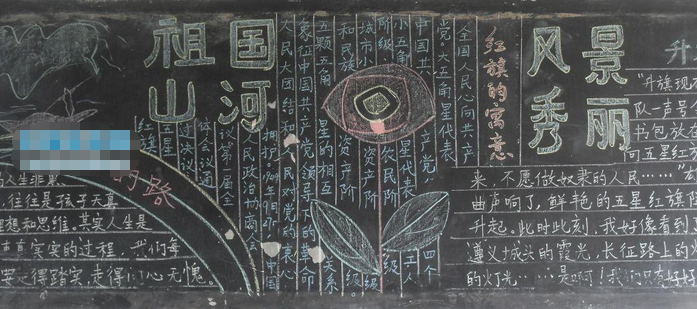 祖国
山河
风景
秀丽
红旗的寓意
全国人民心向共产
党。大五角星代表
中国共产党,
小五角星代表
四个
工人
阶级
农民阶
级
城市小资产阶
级
和民族资产阶
级
五颗五角星的相互
关系
象征中国共产党领导下的革命
人民大团结和人民对党的衷心
拥护
中国
人民政治协商会
议第一届全
体会议通
过决议
五星
红旗
升
“升旗现
队一声号
书包放
向五星红
来,不愿做奴隶的人民……”
曲声响了,鲜艳的五星红旗
升起。此时此刻,我好像看到
遵义城头的霞光,长征路上的
的灯光……是啊!我们
往往是孩子天真
想和思维。其实人生是
真实的过程
要走得踏实,走得问心无愧。